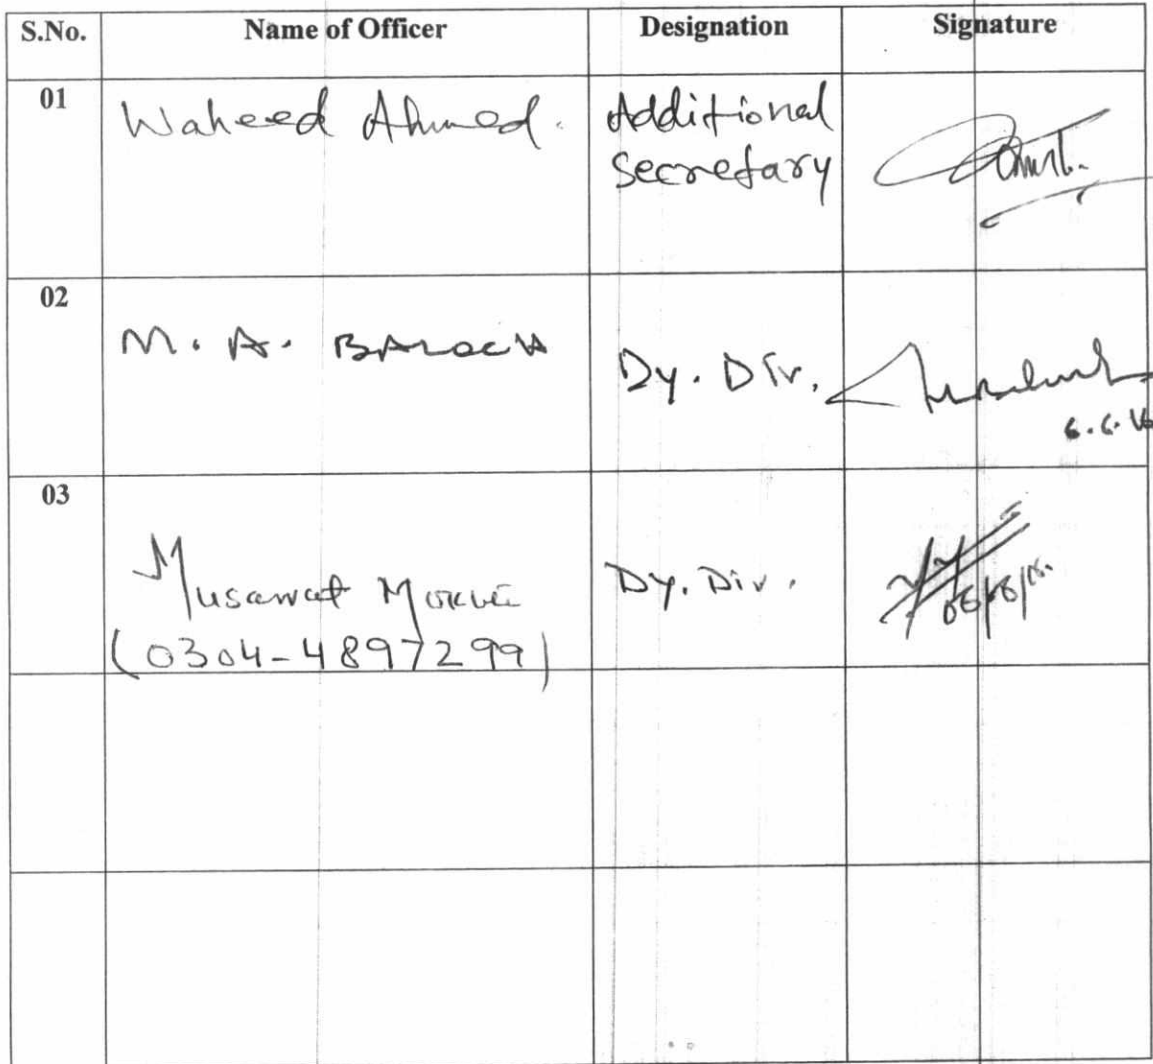 S.No. Name of Officer Designation Signature
01 Waheed Ahmed. Additional
Secretary
02 M. A. BALOCH Dy. Dir.
6.6.16
03
Musawat Dy. Dir.
(0304-4897299)